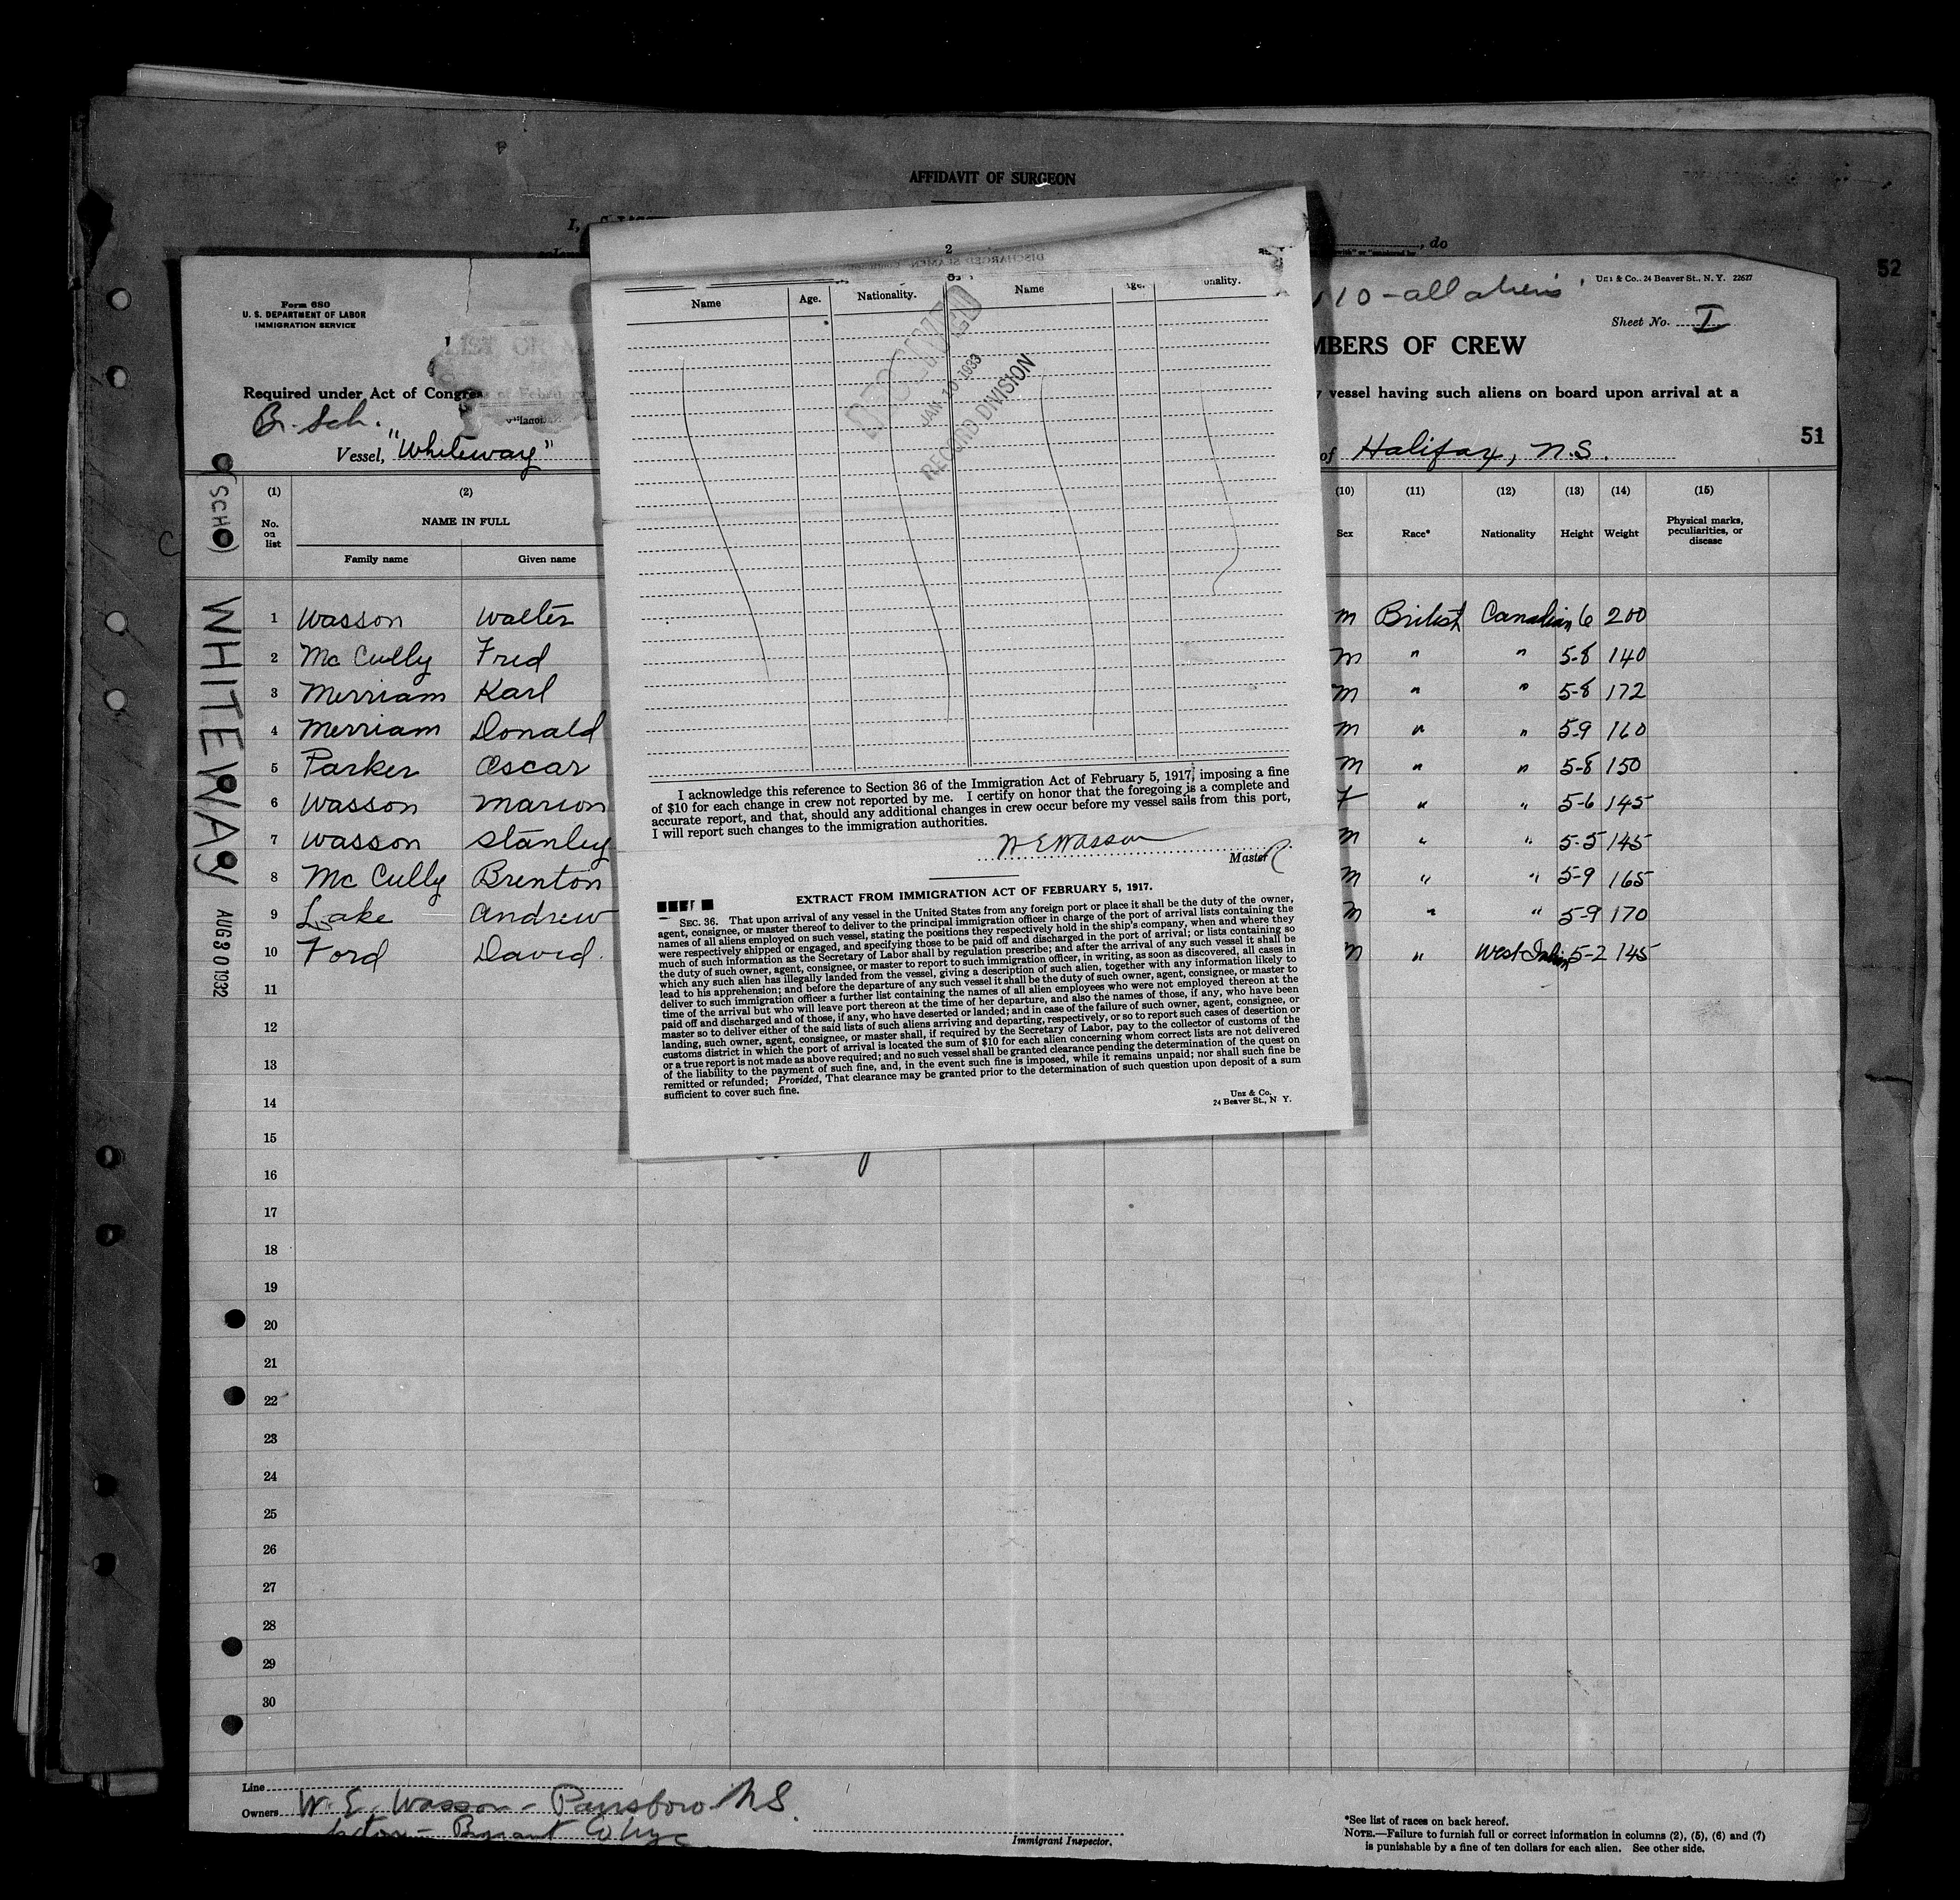 AFFIDAVIT OF SURGEON
I,
, do
52
10 - all aliens
Unz & Co., 24 Beaver St., N. Y. 22627
Form 680
U. S. DEPARTMENT OF LABOR
IMMIGRATION SERVICE
Sheet No. I
LIST OR
MBERS OF CREW
Required under Act of Congres
vessel having such aliens on board upon arrival at a
Br. Sch.
Vessel, "Whiteway"
of Halifax, N.S.
51
(SCH)
WHITEWAY
AUG 30 1932
(1) (2) (10) (11) (12) (13) (14) (15)
No. on list NAME IN FULL Sex Race* Nationality Height Weight Physical marks, peculiarities, or disease
Family name Given name
1 Wasson Walter m British Canadian 6 200
2 McCully Fred m " " 5-8 140
3 Merriam Karl m " " 5-8 172
4 Merriam Donald m " " 5-9 160
5 Parker Oscar m " " 5-8 150
6 Wasson Marion F " " 5-6 145
7 Wasson Stanley m " " 5-5 145
8 McCully Brenton m " " 5-9 165
9 Lake Andrew m " " 5-9 170
10 Ford David. m " West Indian 5-2 145
11
12
13
14
15
16
17
18
19
20
21
22
23
24
25
26
27
28
29
30
2
DISCHARGED SEAMEN
Name Age. Nationality. Name Age. onality.
JAN 10 1933
RECORD DIVISION
I acknowledge this reference to Section 36 of the Immigration Act of February 5, 1917, imposing a fine
of $10 for each change in crew not reported by me. I certify on honor that the foregoing is a complete and
accurate report, and that, should any additional changes in crew occur before my vessel sails from this port,
I will report such changes to the immigration authorities.
W E Wasson
Master
EXTRACT FROM IMMIGRATION ACT OF FEBRUARY 5, 1917.
SEC. 36. That upon arrival of any vessel in the United States from any foreign port or place it shall be the duty of the owner,
agent, consignee, or master thereof to deliver to the principal immigration officer in charge of the port of arrival lists containing the
names of all aliens employed on such vessel, stating the positions they respectively hold in the ship's company, when and where they
were respectively shipped or engaged, and specifying those to be paid off and discharged in the port of arrival; or lists containing so
much of such information as the Secretary of Labor shall by regulation prescribe; and after the arrival of any such vessel it shall be
the duty of such owner, agent, consignee, or master to report to such immigration officer, in writing, as soon as discovered, all cases in
which any such alien has illegally landed from the vessel, giving a description of such alien, together with any information likely to
lead to his apprehension; and before the departure of any such vessel it shall be the duty of such owner, agent, consignee, or master to
deliver to such immigration officer a further list containing the names of all alien employees who were not employed thereon at the
time of the arrival but who will leave port thereon at the time of her departure, and also the names of those, if any, who have been
paid off and discharged and of those, if any, who have deserted or landed; and in case of the failure of such owner, agent, consignee, or
master so to deliver either of the said lists of such aliens arriving and departing, respectively, or so to report such cases of desertion or
landing, such owner, agent, consignee, or master shall, if required by the Secretary of Labor, pay to the collector of customs of the
customs district in which the port of arrival is located the sum of $10 for each alien concerning whom correct lists are not delivered
or a true report is not made as above required; and no such vessel shall be granted clearance pending the determination of the quest on
of the liability to the payment of such fine, and, in the event such fine is imposed, while it remains unpaid; nor shall such fine be
remitted or refunded; Provided, That clearance may be granted prior to the determination of such question upon deposit of a sum
sufficient to cover such fine.
Unz & Co.
24 Beaver St., N Y.
Line
Owners W. E. Wasson - Parrsboro N.S.
Bryant
Immigrant Inspector.
*See list of races on back hereof.
NOTE.—Failure to furnish full or correct information in columns (2), (5), (6) and (7)
is punishable by a fine of ten dollars for each alien. See other side.